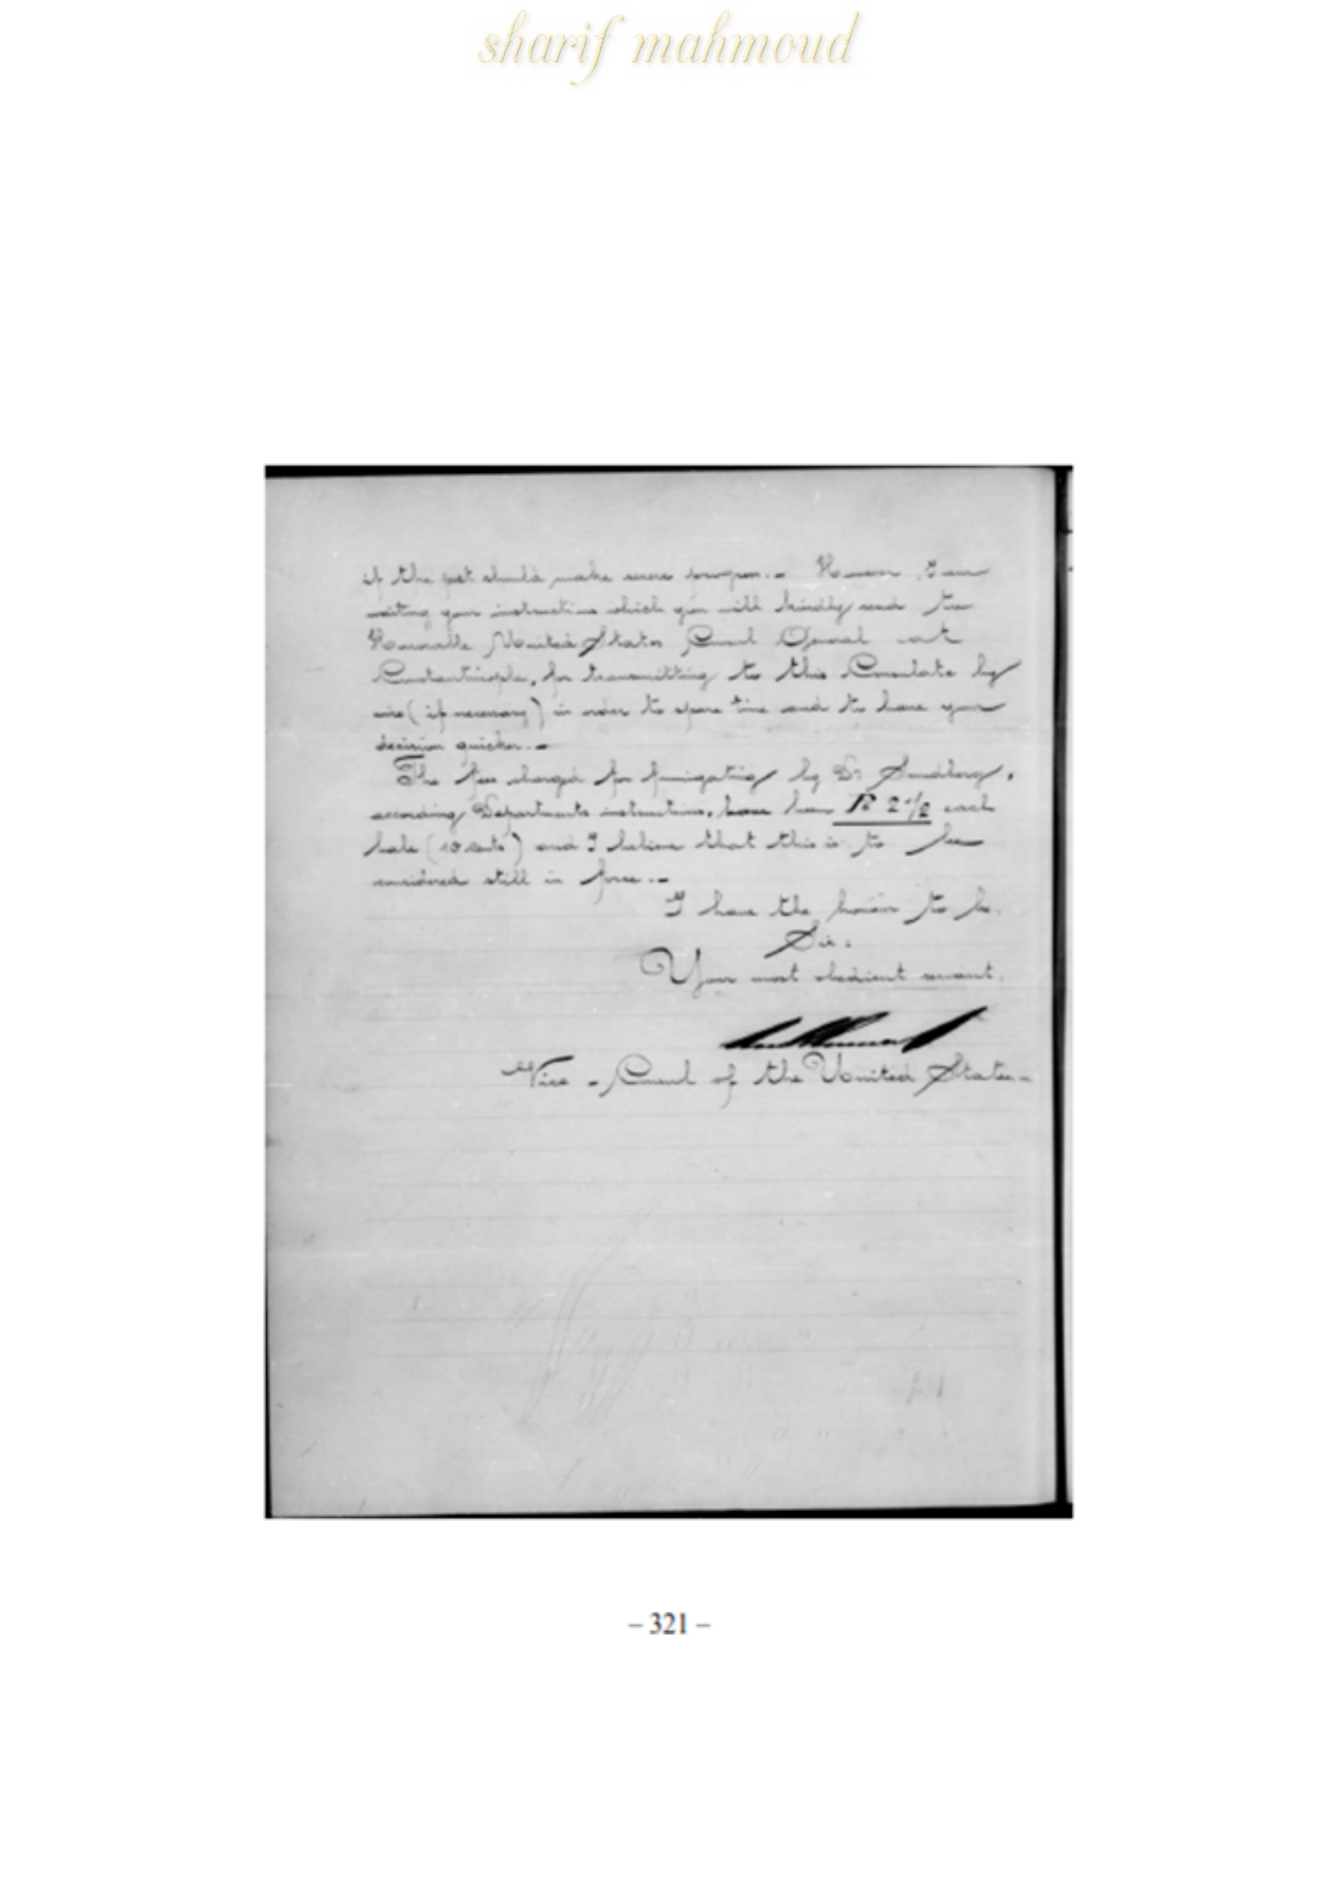 sharif mahmoud
if the pest should make more progress.- However, I am
waiting your instructions which you will kindly send to
Honorable United States Consul General at
Constantinople, for transmitting to this Consulate by
wire (if necessary) in order to spare time and to have your
decision quicker.-
The fees charged for fumigating by Dr
according Departments instructions, have been P. 2 1/2 each
bale (10 cents) and I believe that this is to be
considered still in force.-
I have the honor to be,
Sir,
Your most obedient servant,
Vice-Consul of the United States-
– 321 –